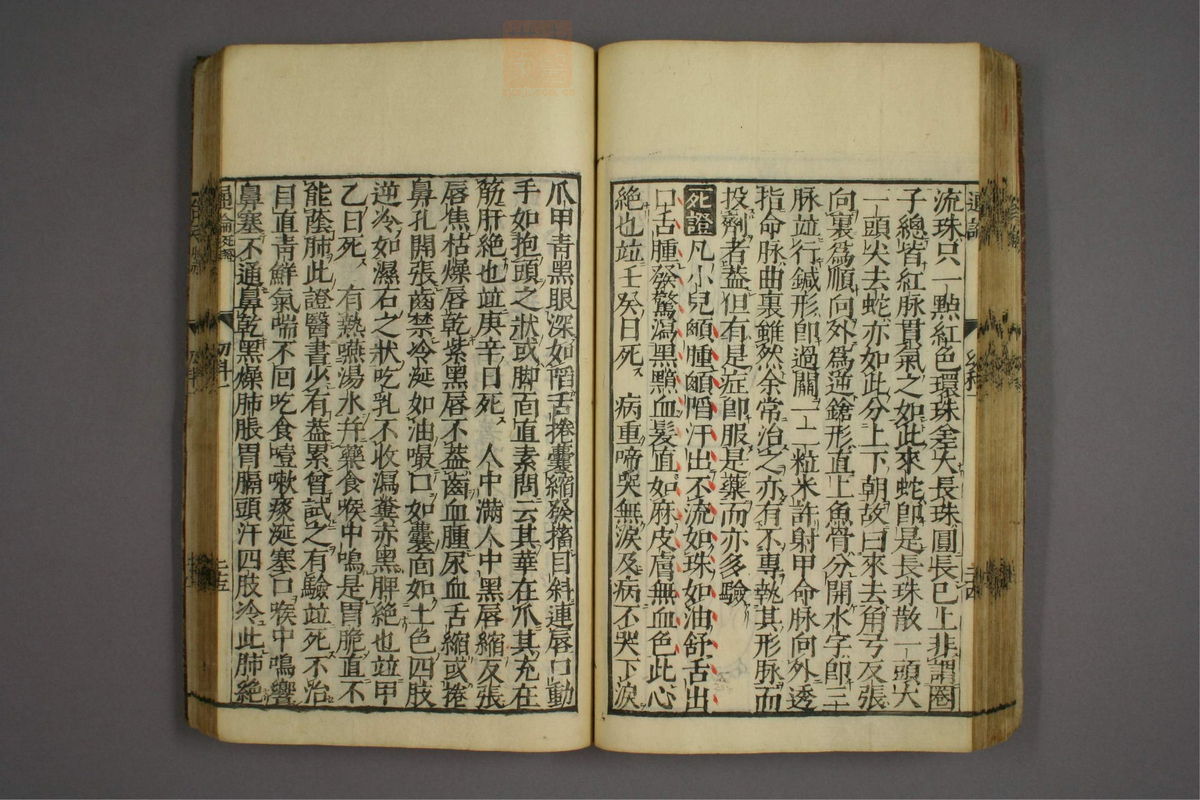 流珠只一㸃紅色環珠差大長珠圓長已上非謂圈
子總皆紅脉貫氣之如此來蛇卽是長珠散一頭大
一頭尖去蛇亦如此分上下朝故曰來去角弓反張
向裏爲順向外爲逆鎗形直上魚骨分開水字卽三
脉並行鍼形卽過關一二粒米許射甲命脉向外透
指命脉曲裏雖然余常治之亦有不專執其形脉而
投劑者葢但有是症卽服是藥而亦多驗
死證 凡小兒顖腫顖陷汗出不流如珠如油舒舌出
口舌腫發驚瀉黑黯血髮直如麻皮膚無血色此心
絶也並壬癸日死 病重啼哭無淚及病不哭下淚
爪甲青黑眼深如陷舌捲囊縮發搐目斜連唇口動
手如抱頭之狀或脚面直素問云其華在爪其充在
筋肝絶也並庚辛日死 人中滿人中黑唇縮反張
唇焦枯燥唇乾紫黑唇不葢齒血腫尿血舌縮或捲
鼻孔開張齒禁冷涎如油噏口如囊面如土色四肢
逆冷如濕石之狀吃乳不收瀉糞赤黑脾絶也並甲
乙日死 有熱嚥湯水并藥食喉中鳴是胃脆直不
能蔭肺此證醫書少有葢累曾試之有驗並死不治
目直青鮮氣喘不回吃食噎嗽痰涎塞口喉中鳴響
鼻塞不通鼻乾黑燥肺脹胃膈頭汗四肢冷此肺絶